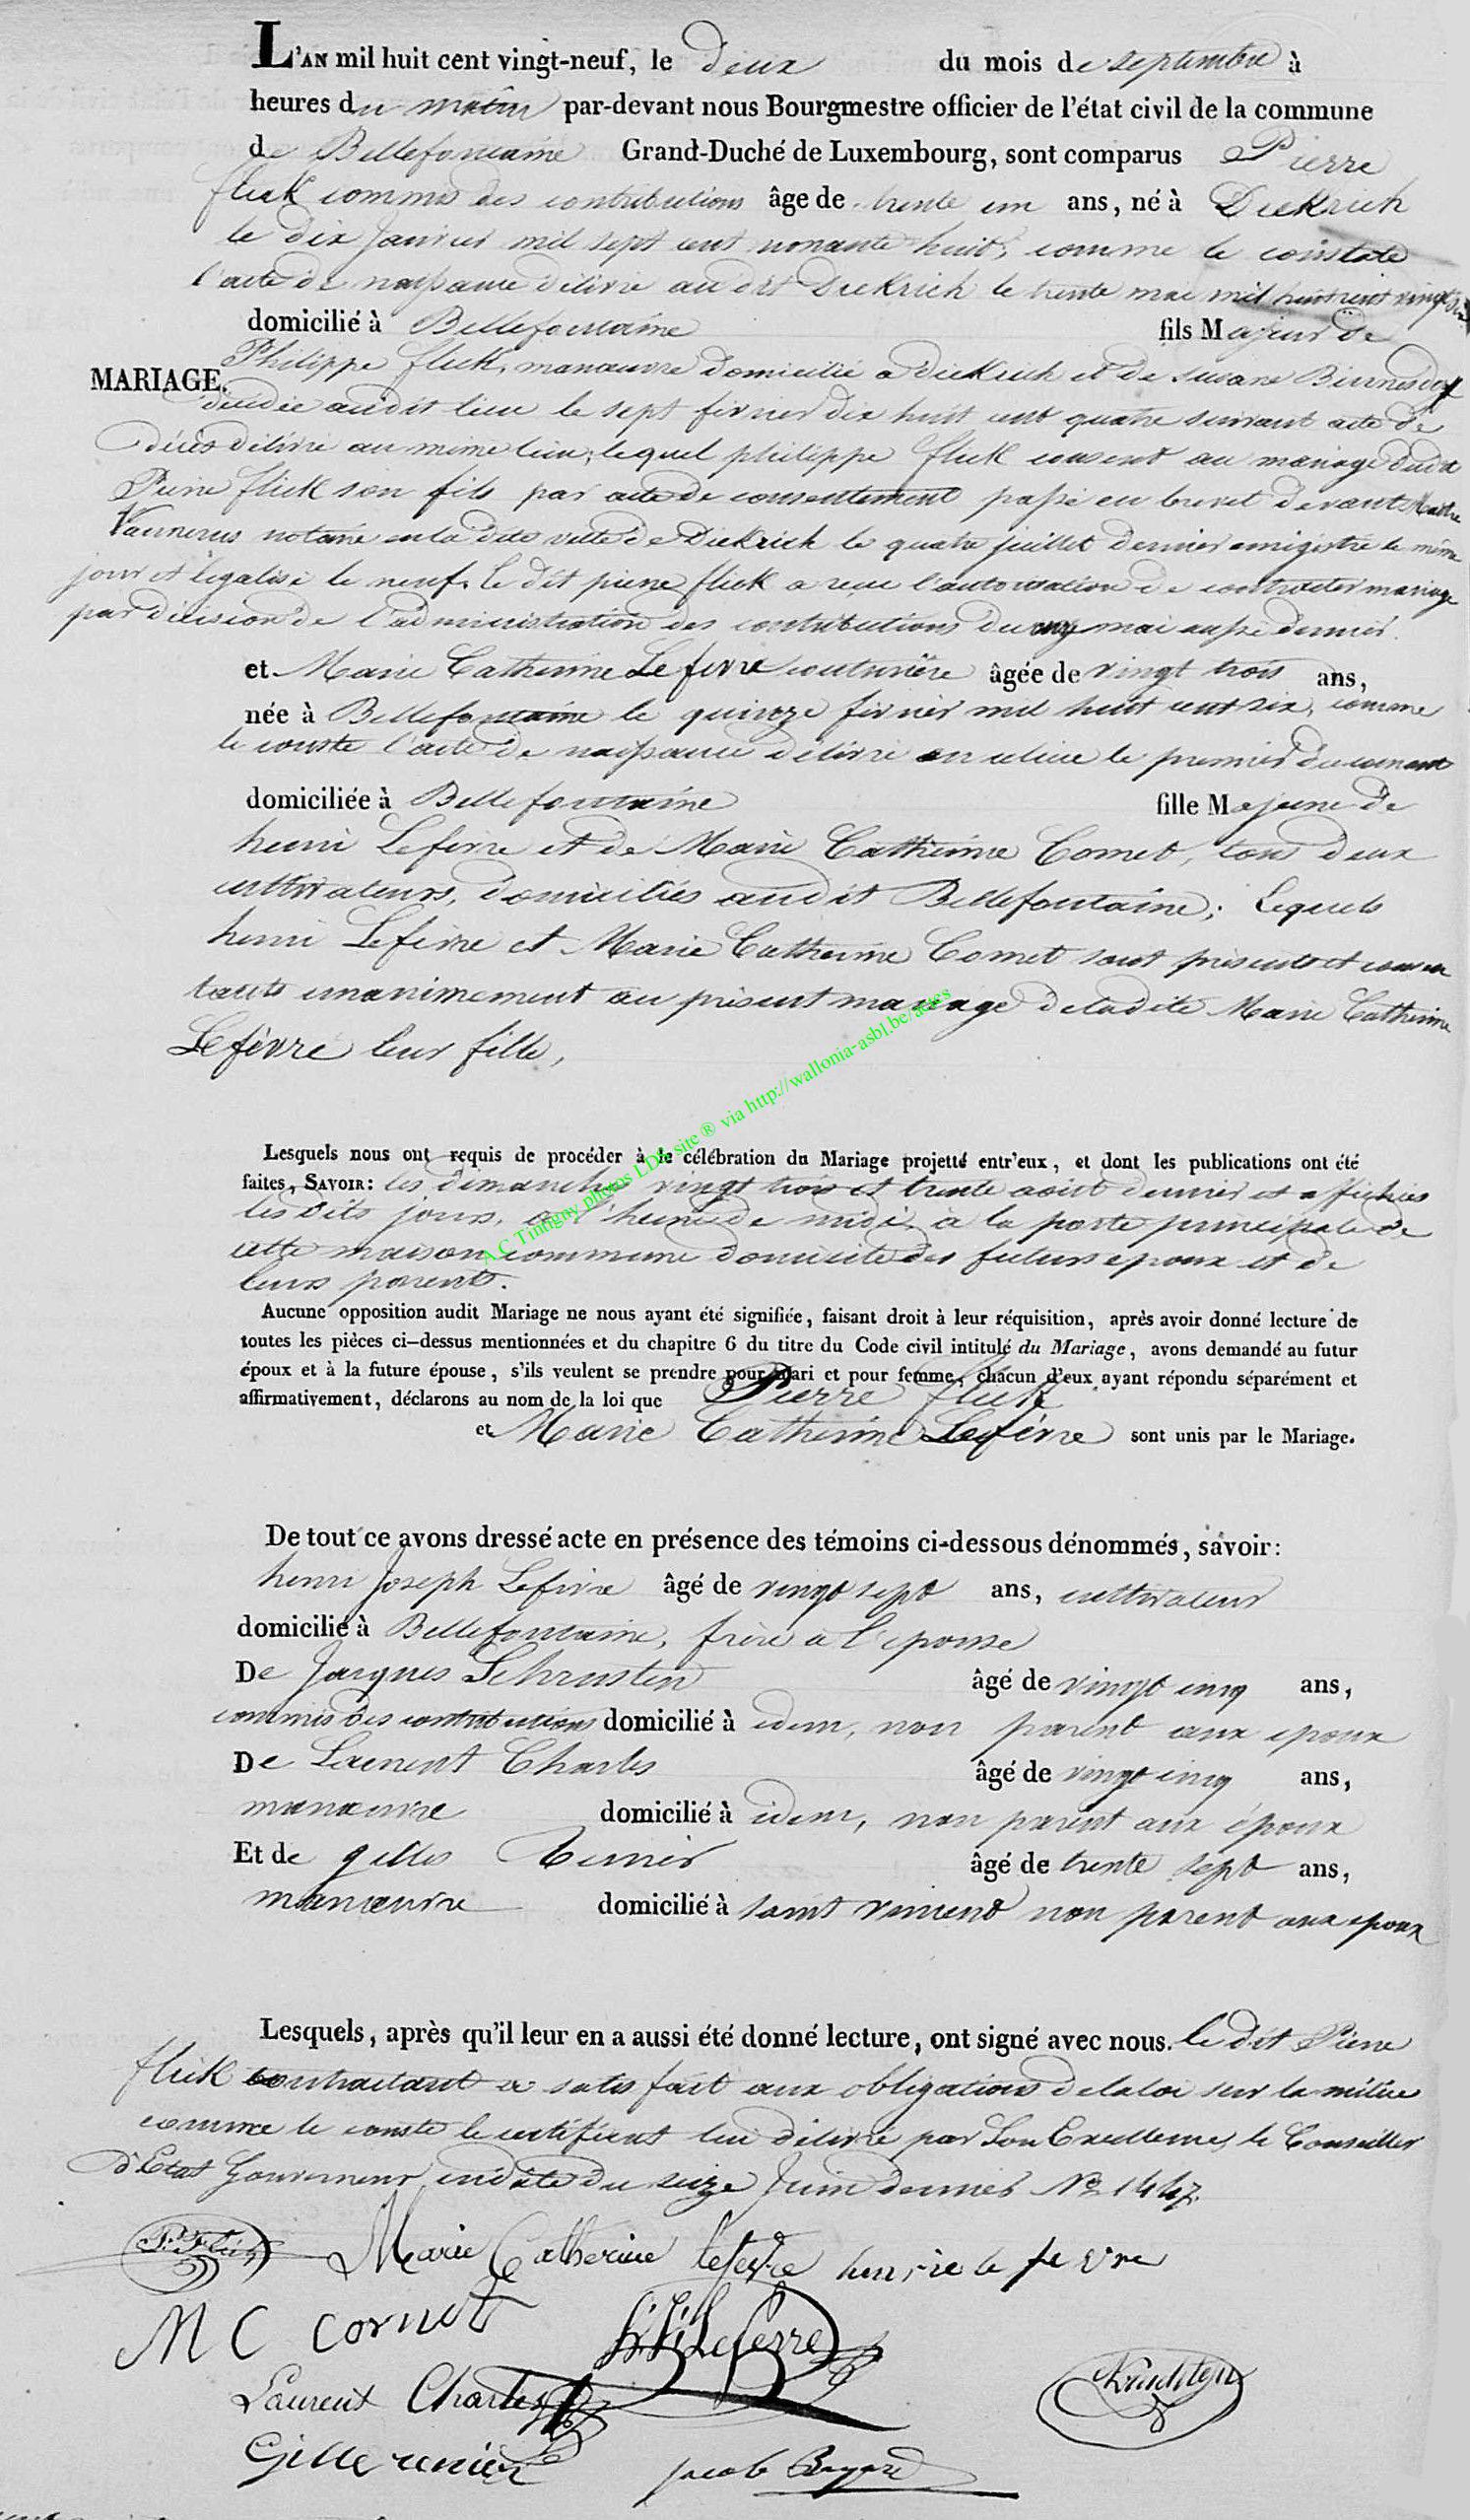 L'AN mil huit cent vingt-neuf, le deux du mois de septembre à
heures du matin par-devant nous Bourgmestre officier de l'état civil de la commune
de Bellefontaine Grand-Duché de Luxembourg, sont comparus Pierre
flick commis des contributions âge de trente un ans, né à Diekrich
le dix Janvier mil sept cent nonante huit, comme le constate
l'acte de naissance délivré au dit Diekrich le trente mai mil huit cent vingt
domicilié à Bellefontaine fils Majeur de
MARIAGE.
Philippe flick, manœuvre domicilié a diekrich et de susane
décédée audit lieu le sept février dix huit cent quatre suivant acte de
décès délivré au même lieu; lequel philippe flick consent au mariage dudit
Pierre flick son fils par acte de consentement passé en brevet devant Maitre
Vannerus notaire en la dite ville de Diekrich le quatre juillet dernier enrégistré le même
jour et légalisé le neuf. le dit pierre flick a reçu l'autorisation de contracter mariage
par décision de l'administration des contributions du mai aussi dernier.
et Marie Catherine Lefevre couturière âgée de vingt trois ans,
née à Bellefontaine le quinze février mil huit cent six, comme
le conste l'acte de naissance délivré en ce lieu le premier du courant
domiciliée à Bellefontaine fille Majeure de
henri Lefevre et de Marie Catherine Cornet, tous deux
cultivateurs, domiciliés audit Bellefontaine; Lequels
henri Lefevre et Marie Catherine Cornet sont présents et consen
tants unanimement au présent mariage de ladite Marie Catherine
Lefèvre leur fille,
A.C Tintigny photos LDS site ® via http://wallonia-asbl.be/actes
Lesquels nous ont requis de procéder à la célébration du Mariage projetté entr'eux, et dont les publications ont été
faites, SAVOIR: les dimanches vingt trois et trente aout dernier et affichées
les dits jours, a l'heure de midi, à la porte principale de
cette maison commune domicile des futurs epoux et de
leurs parents.
Aucune opposition audit Mariage ne nous ayant été signifiée, faisant droit à leur réquisition, après avoir donné lecture de
toutes les pièces ci-dessus mentionnées et du chapitre 6 du titre du Code civil intitulé du Mariage, avons demandé au futur
époux et à la future épouse, s'ils veulent se prendre pour mari et pour femme, chacun d'eux ayant répondu séparément et
affirmativement, déclarons au nom de la loi que Pierre flick
et Marie Catherine Lefèvre sont unis par le Mariage.
De tout ce avons dressé acte en présence des témoins ci-dessous dénommés, savoir:
henri Joseph Lefevre âgé de vingt sept ans, cultivateur
domicilié à Bellefontaine, frère a l'epouse
De Jacques âgé de vingt cinq ans,
commis des contributions domicilié à idem, non parent aux epoux
De Laurent Charles âgé de vingt cinq ans,
manœuvre domicilié à idem, non parent aux époux
Et de gilles âgé de trente sept ans,
manœuvre domicilié à saint vincent non parent aux epoux
Lesquels, après qu'il leur en a aussi été donné lecture, ont signé avec nous. le dit Pierre
flick contractant a satisfait aux obligations de la loi sur la milice
comme le conste le certificat lui délivré par Son Excellence, le Conseiller
d'Etat Gouverneur en date du seize Juin dernier Nº 1447.
P. Flick Marie Catherine lefevre henrie le fe vre
M C cornet H. J. Lefevre
Laurent Charles
Gille renier jacob